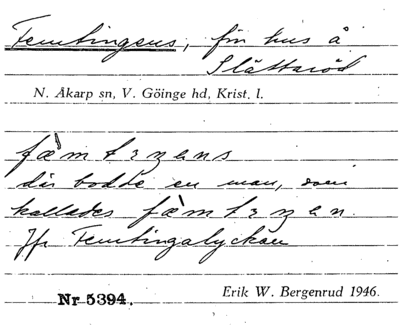 Femtingens, fin hus å
Slättaröd
N. Åkarp sn, V. Göinge hd, Krist. l.
fæ̀mtıŋens
där bodde en man, som
kallades fæ̀mtıŋen.
Jfr Femtingalyckan
Nr 5394.
Erik W. Bergenrud 1946.